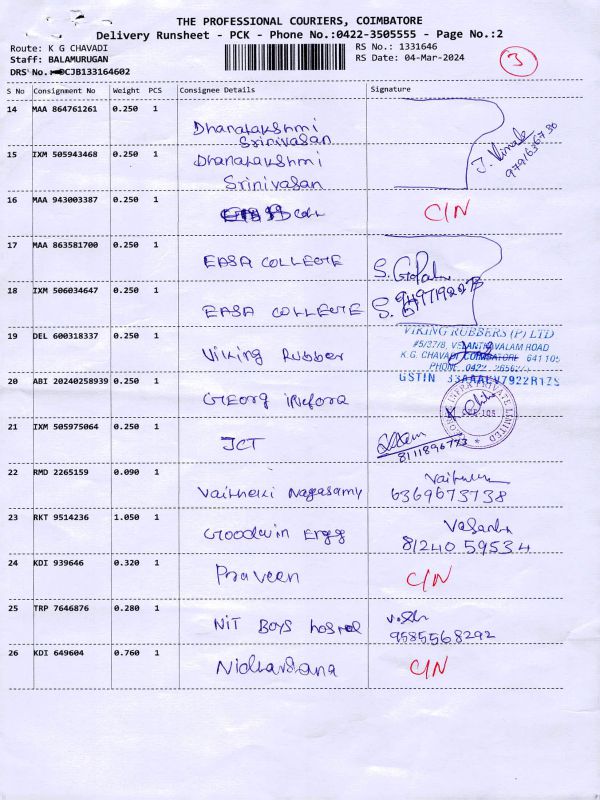 THE PROFESSIONAL COURIERS, COIMBATORE
Delivery Runsheet - PCK - Phone No.:0422-3505555 - Page No.:2
Route: K G CHAVADI
RS No.: 1331646
Staff: BALAMURUGAN
RS Date: 04-Mar-2024
DRS No. CJB133164602
3
S No Consignment No Weight PCS Consignee Details Signature
14 MAA 864761261 0.250 1
Dhanalakshmi
Srinivasan
15 IXM 505943468 0.250 1
Dhanalakshmi
Srinivasan
16 MAA 943003387 0.250 1
C/N
17 MAA 863581700 0.250 1
EASA COLLEGE
18 IXM 506034647 0.250 1
EASA COLLEGE
19 DEL 600318337 0.250 1
Viking Rubber
VIKING RUBBERS (P) LTD
#5/37/8, VELANTHAVALAM ROAD
K.G. CHAVADI COIMBATORE 641 105
PHONE 0422
GSTIN
20 ABI 20240258939 0.250 1
Georg
PRIVATE LIMITED
21 IXM 505975064 0.250 1
JCT
8111896773
22 RMD 2265159 0.090 1
Vaitheki Nagasamy
6369673738
23 RKT 9514236 1.050 1
Goodwin Engg
81240 59534
24 KDI 939646 0.320 1
Praveen C/N
25 TRP 7646876 0.280 1
NIT BOYS hostel
9585568292
26 KDI 649604 0.760 1
Nidharshana C/N